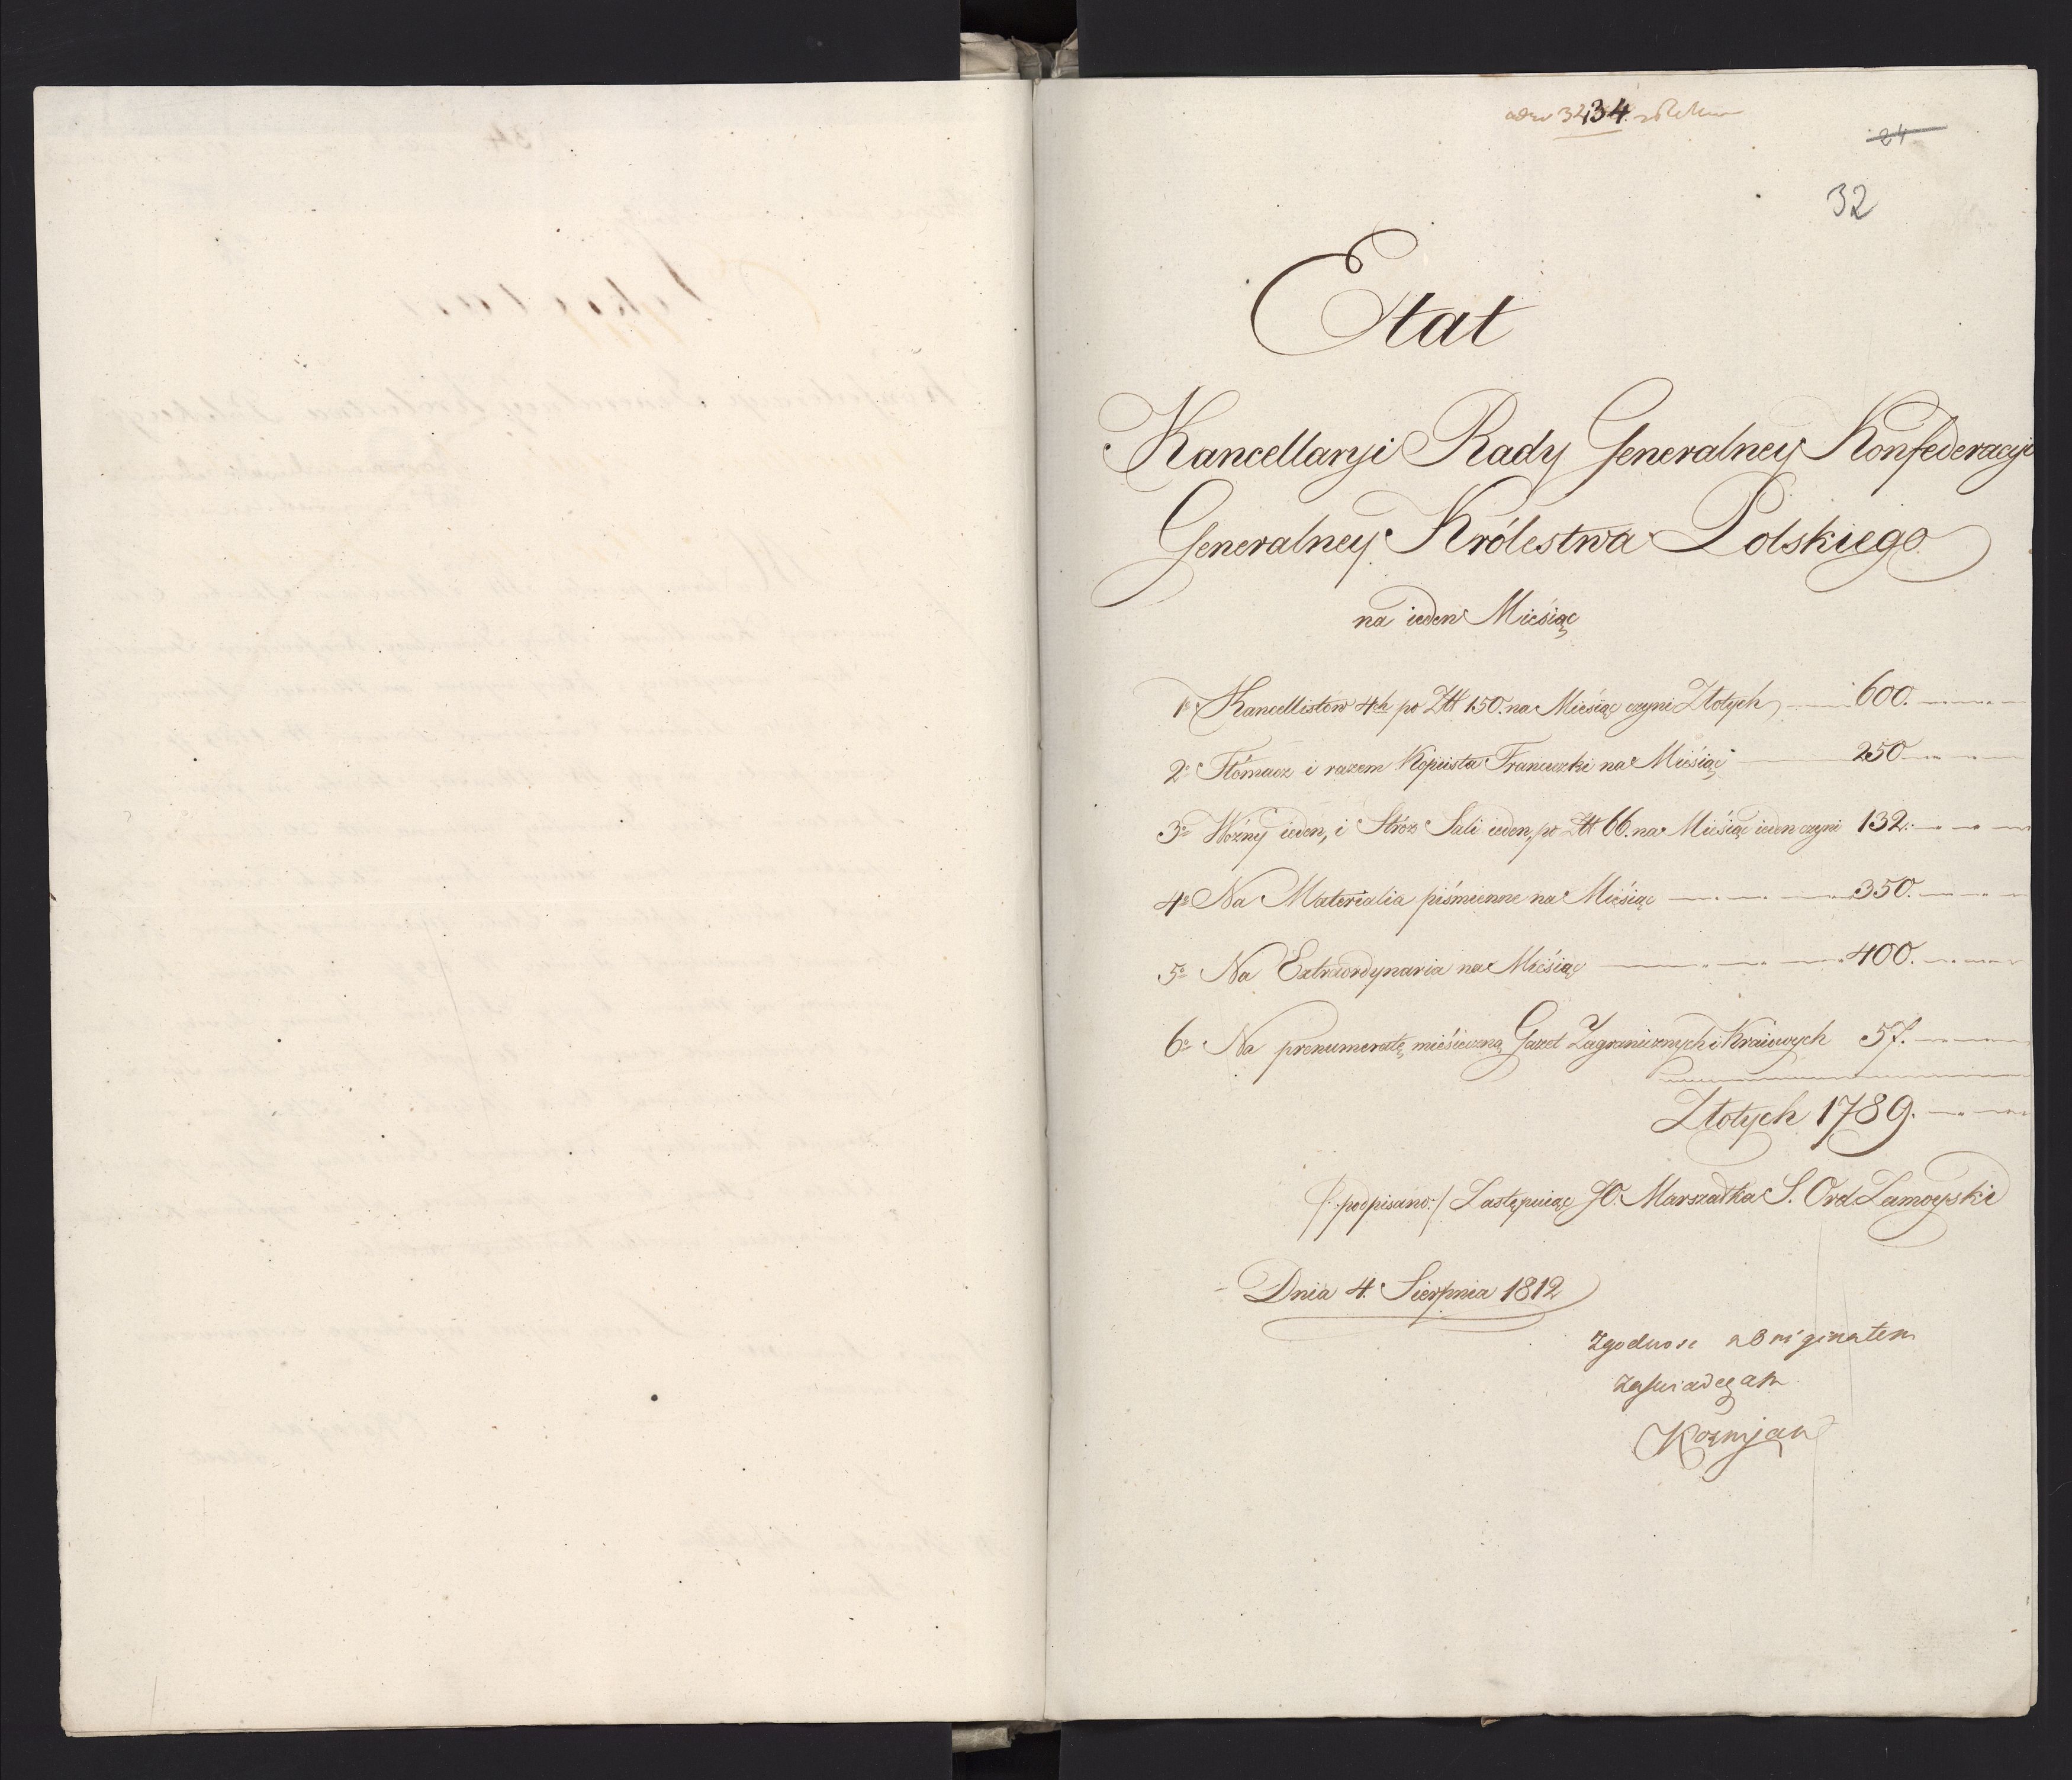 3434.
24
32
Etat
Kancellaryi Rady Generalney Konfederacyi
Generalney Królestwa Polskiego
na ieden Miesiąc
1º Kancellistów 4ch po Złł 150. na Miesiąc czyni Złotych 600.
2º Tłómacz i razem Kopiista Francuzki na Miesiąc 250
3º Woźny ieden, i Stróz Sali ieden, po Złł 66. na Miesiąc ieden czyni 132.
4º Na Materialia piśmienne na Miesiąc 350.
5º Na Extraordynaria na Miesiąc 400.
6º Na prenumeratę miesieczną Gazet Zagranicznych i Kraiowych 57.
Złotych 1789.
/:podpisano:/ Zastępuiąc JO. Marszałka S. Ord. Zamoyski
Dnia 4. Sierpnia 1812
Zgodnosc z Originałem
Zaswiadczam.
Kozmjan